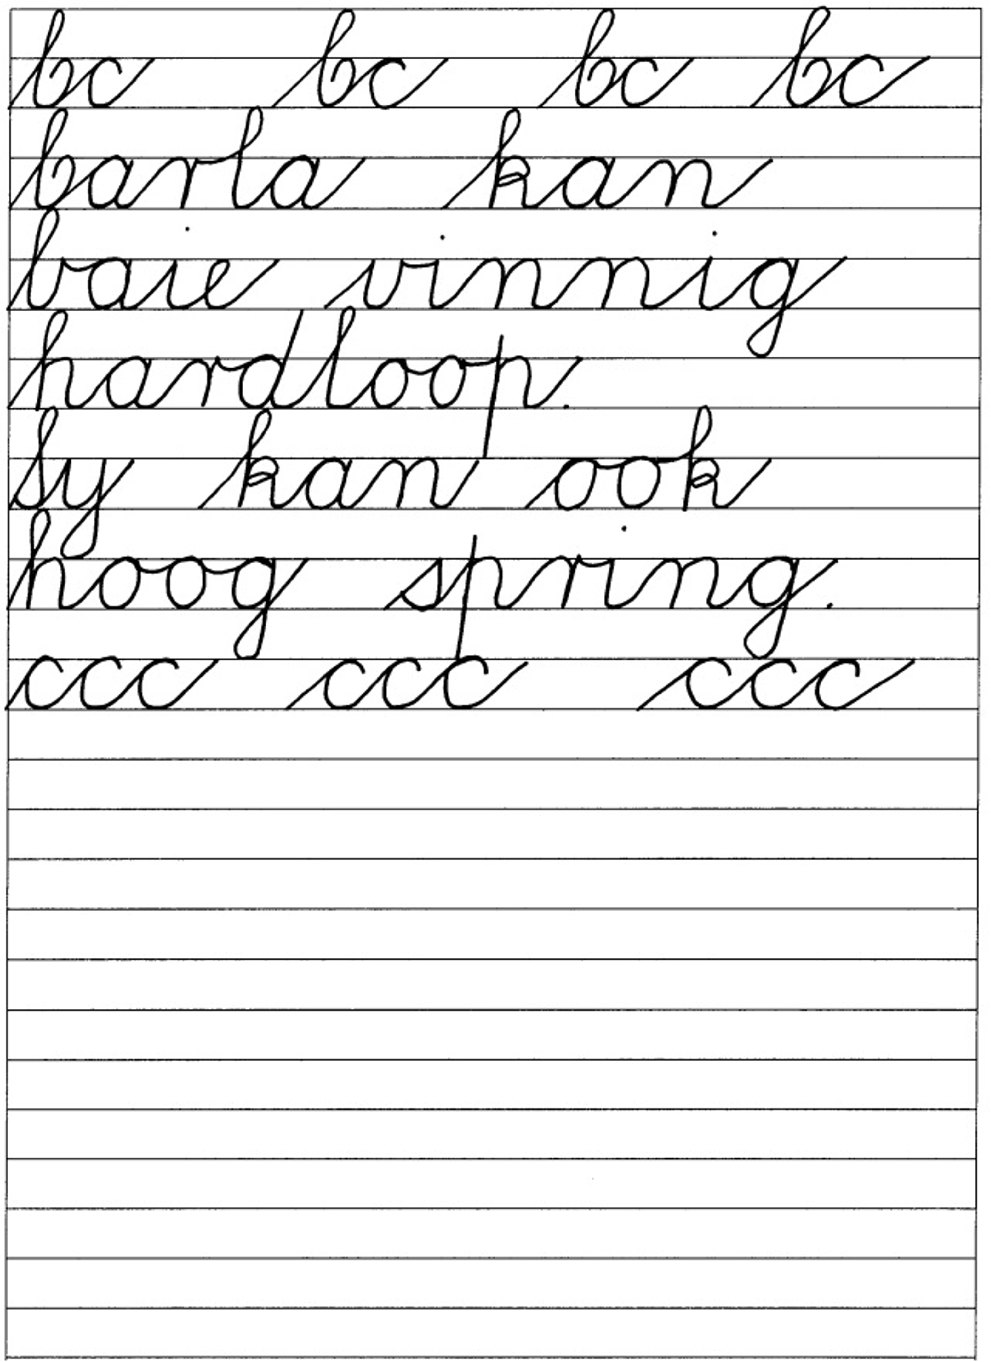 Cc Cc Cc Cc
Carla kan
baie vinnig
hardloop.
Sy kan ook
hoog spring.
ccc ccc ccc